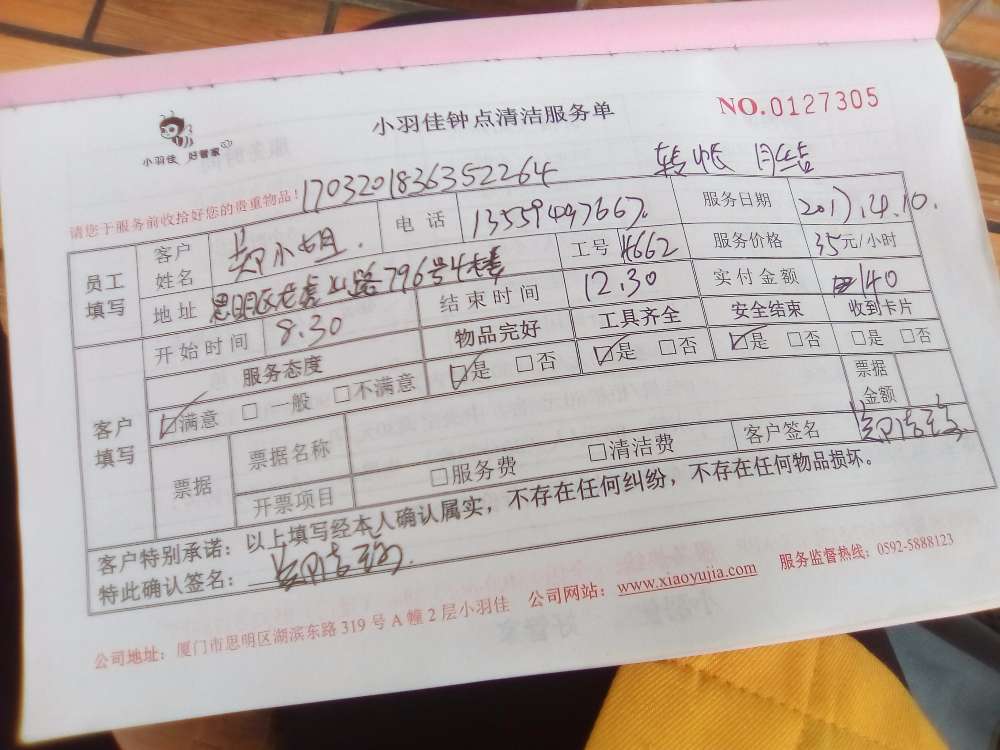 小羽佳钟点清洁服务单
NO.0127305
小羽佳 好管家
转帐 月结
请您于服务前收拾好您的贵重物品! 1703201836352264
员工填写 客户姓名 郑小姐. 电话 13559497667. 服务日期 2017.4.10.
地址 思明区龙虎山路796号4楼 工号 4662 服务价格 35元/小时
开始时间 8.30 结束时间 12.30 实付金额 140
客户填写 服务态度 物品完好 工具齐全 安全结束 收到卡片
☑满意 □一般 □不满意 ☑是 □否 ☑是 □否 ☑是 □否 □是 □否
票据 票据名称 票据金额
开票项目 □服务费 □清洁费 客户签名
客户特别承诺:以上填写经本人确认属实,不存在任何纠纷,不存在任何物品损坏。
特此确认签名:
公司地址:厦门市思明区湖滨东路319号A幢2层小羽佳 公司网站:www.xiaoyujia.com 服务监督热线:0592-5888123